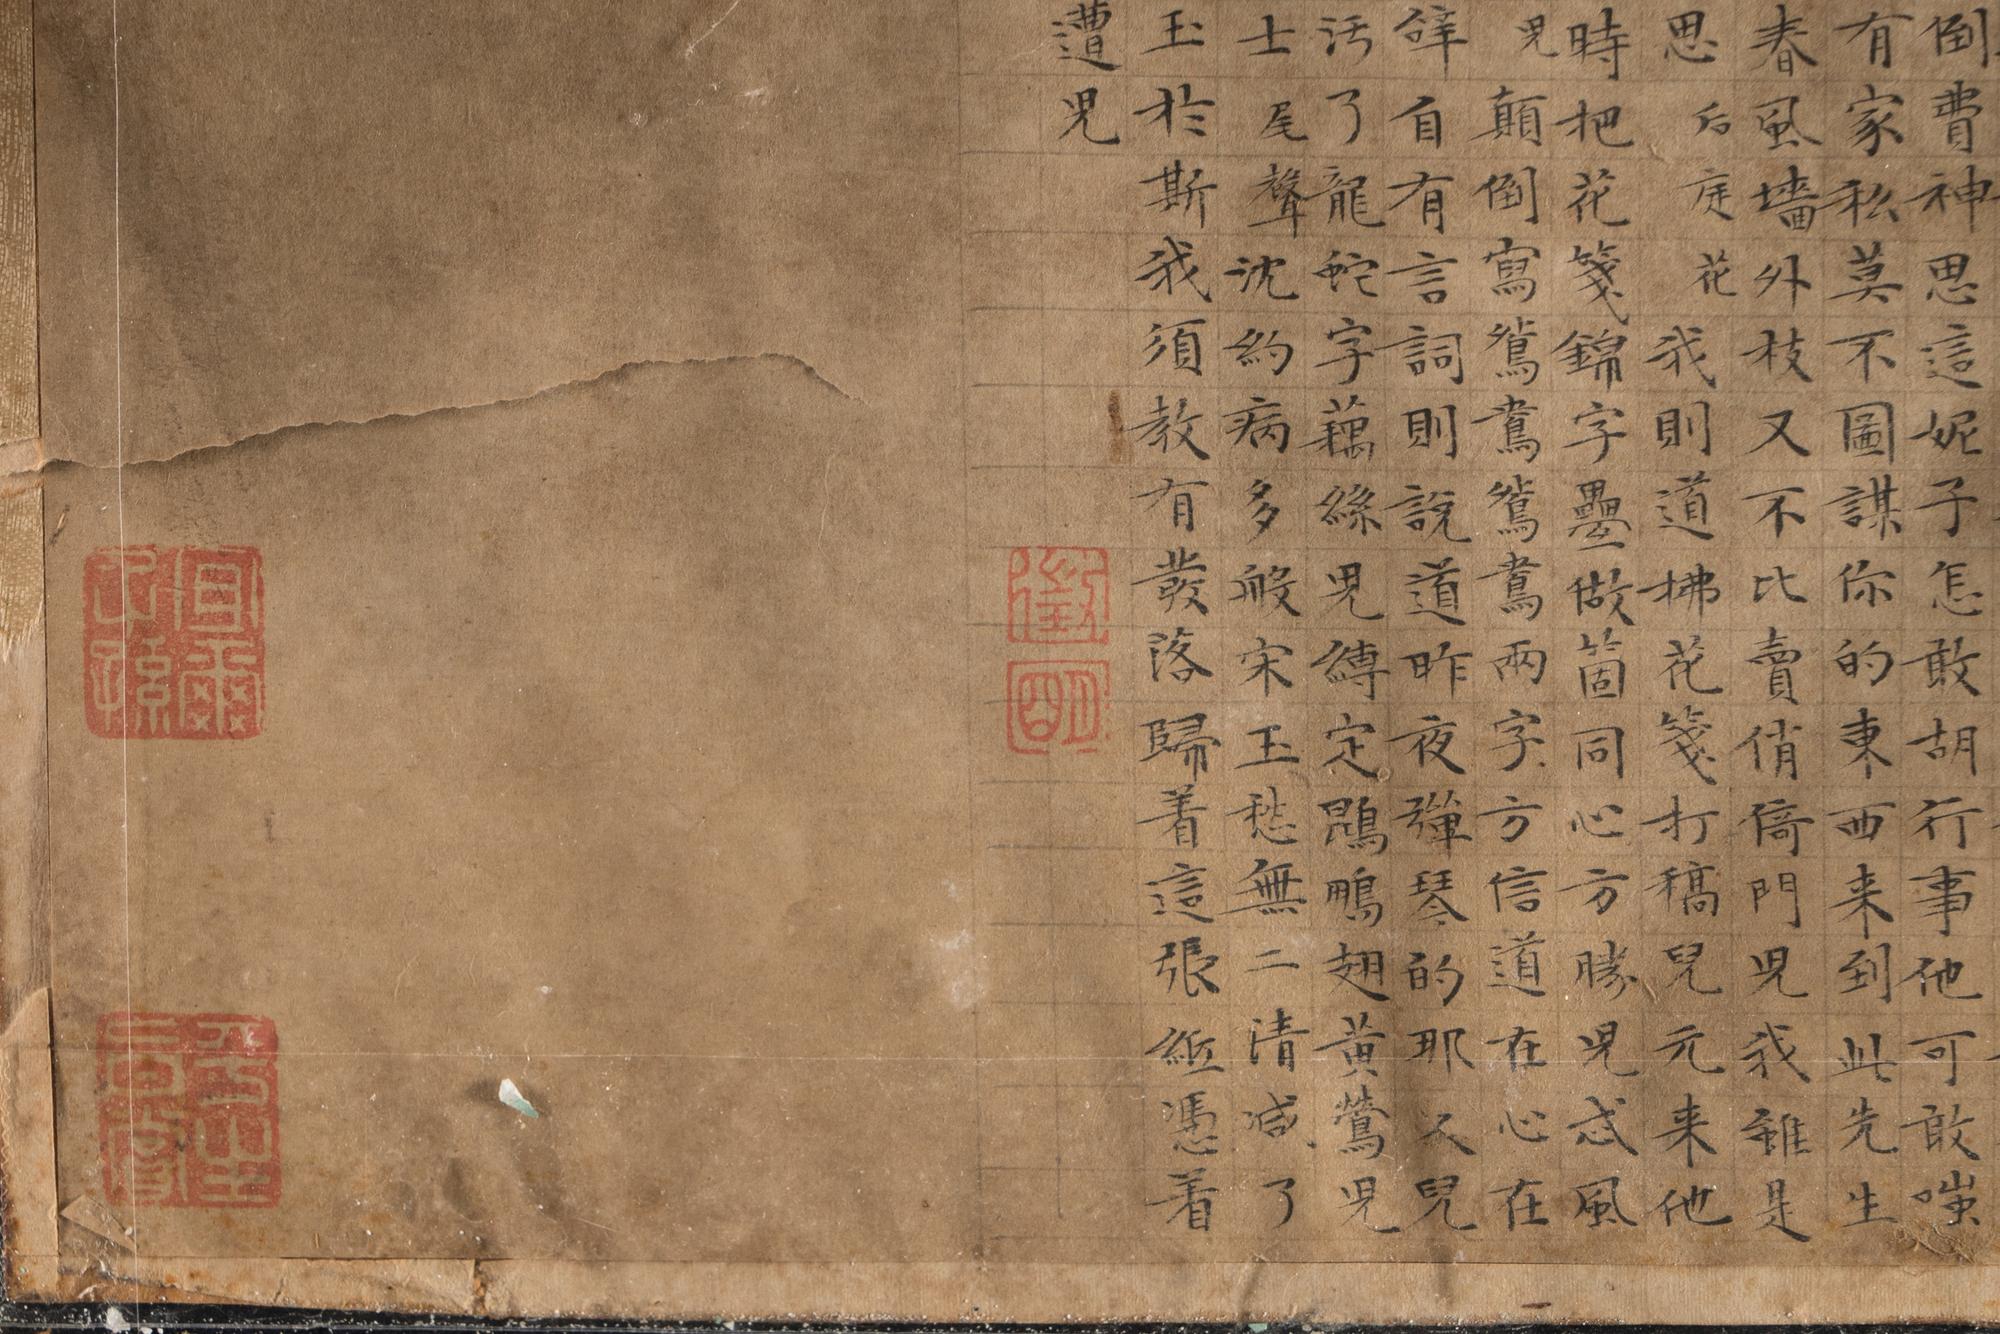 倒費神思這妮子怎敢胡行事他可敢嗤
有家私莫不圖謀你的東西来到此先生
春風墙外枝又不比賣俏倚門児我雖是
思　后庭花　我則道拂花箋打稿兒元来他
時把花箋錦字疊做箇同心方勝児忒風
児顛倒寫鴛鴦鴛鴦兩字方信道在心在
自有言詞則說道昨夜彈琴的那人兒
污了龍蛇字藕絲児縛定鵾鵬翅黄鶯児
士　尾聲　沈約病多般宋玉愁無二清减了
玉於斯我須教有發落歸着這張紙憑着
遭児
徵明
宜爾子孫